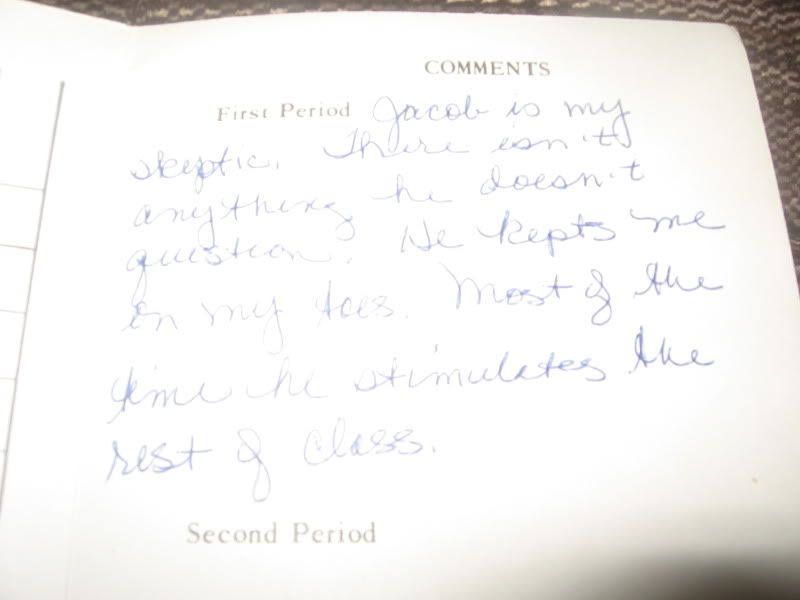 COMMENTS
First Period Jacob is my
skeptic. There isn't
anything he doesn't
question. He kepts me
on my toes. Most of the
time he stimulates the
rest of class.
Second Period